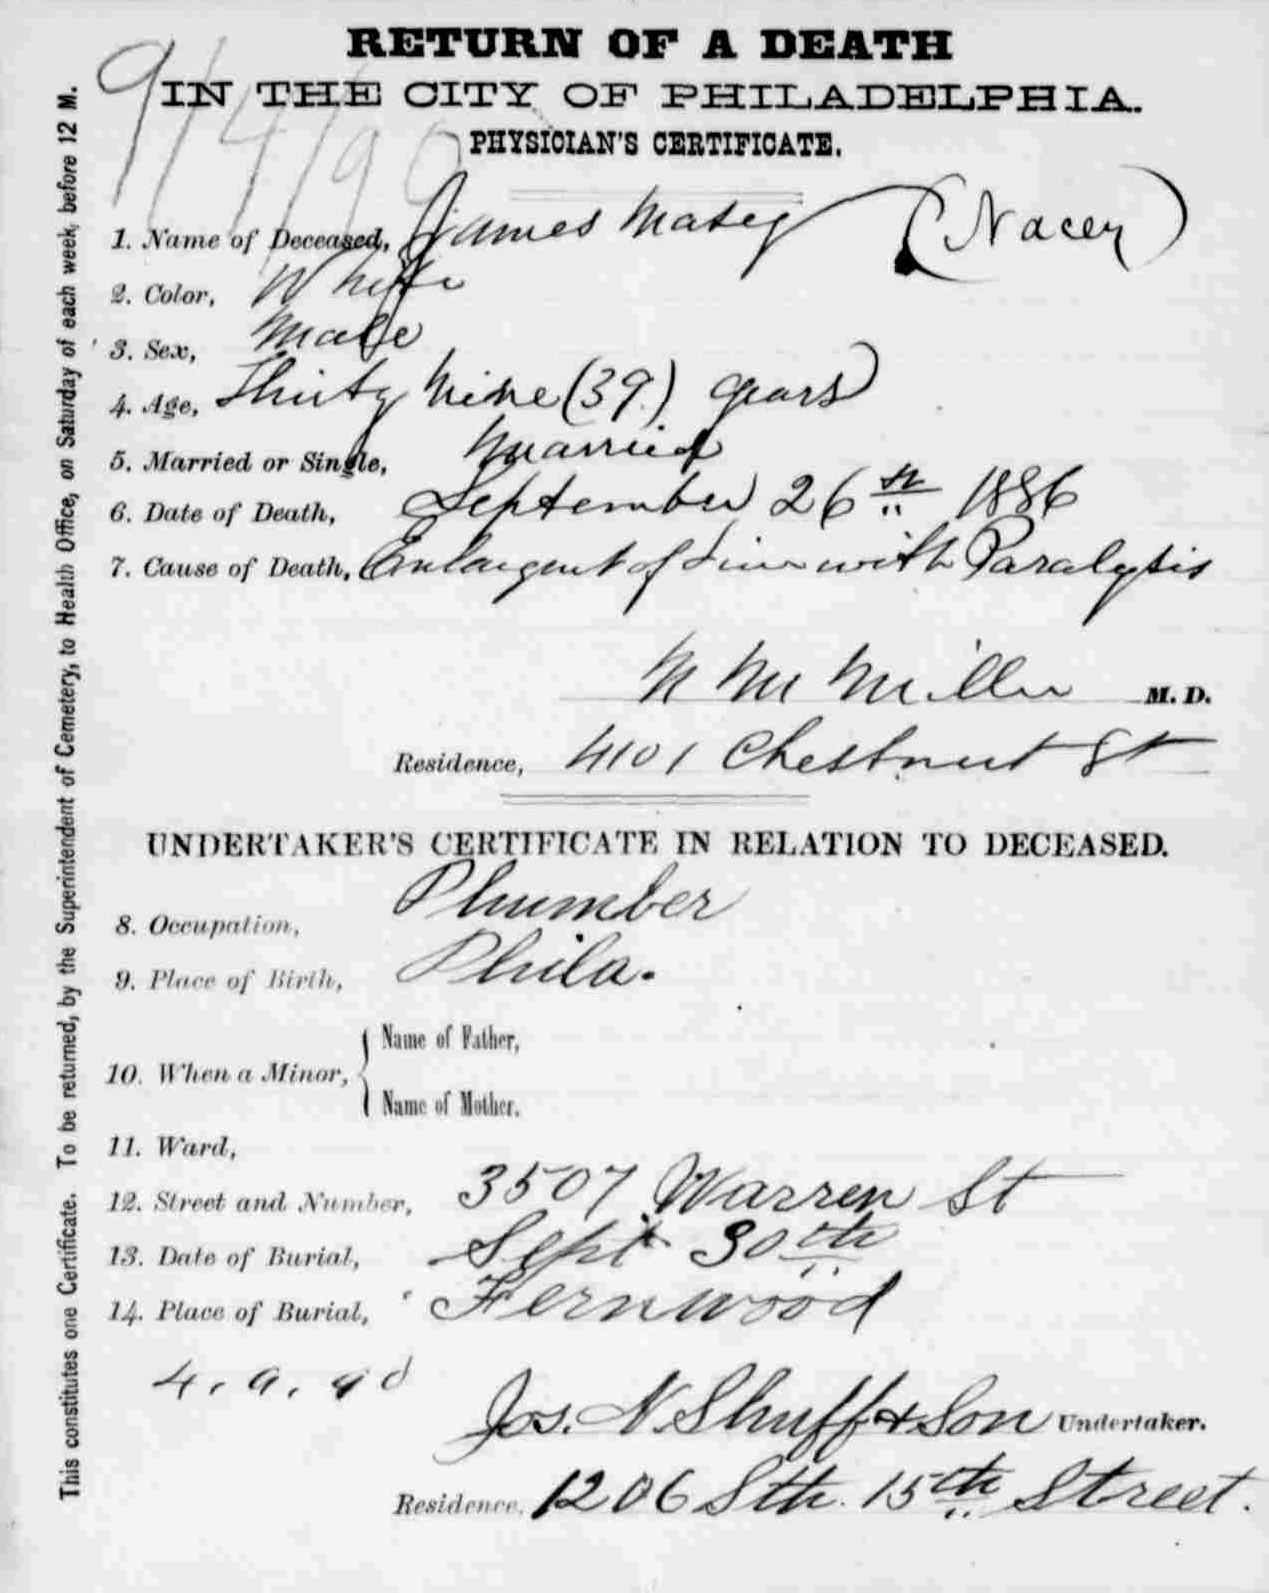 RETURN OF A DEATH
IN THE CITY OF PHILADELPHIA.
PHYSICIAN'S CERTIFICATE.
1. Name of Deceased, James Macey (Nacey)
2. Color, White
3. Sex, Male
4. Age, Thirty Nine (39) years
5. Married or Single, Married
6. Date of Death, September 26th 1886
7. Cause of Death, Enlargent of Liver with Paralysis
Miller M. D.
Residence, 4101 Chestnut St
UNDERTAKER'S CERTIFICATE IN RELATION TO DECEASED.
8. Occupation, Plumber
9. Place of Birth, Phila.
10. When a Minor, { Name of Father,
Name of Mother.
11. Ward,
12. Street and Number, 3507 Warren St
13. Date of Burial, Sept 30th
14. Place of Burial, Fernwood
Jos. N. Shuff & Son Undertaker.
Residence, 1206 Sth. 15th Street.
This constitutes one Certificate. To be returned, by the Superintendent of Cemetery, to Health Office, on Saturday of each week, before 12 M.